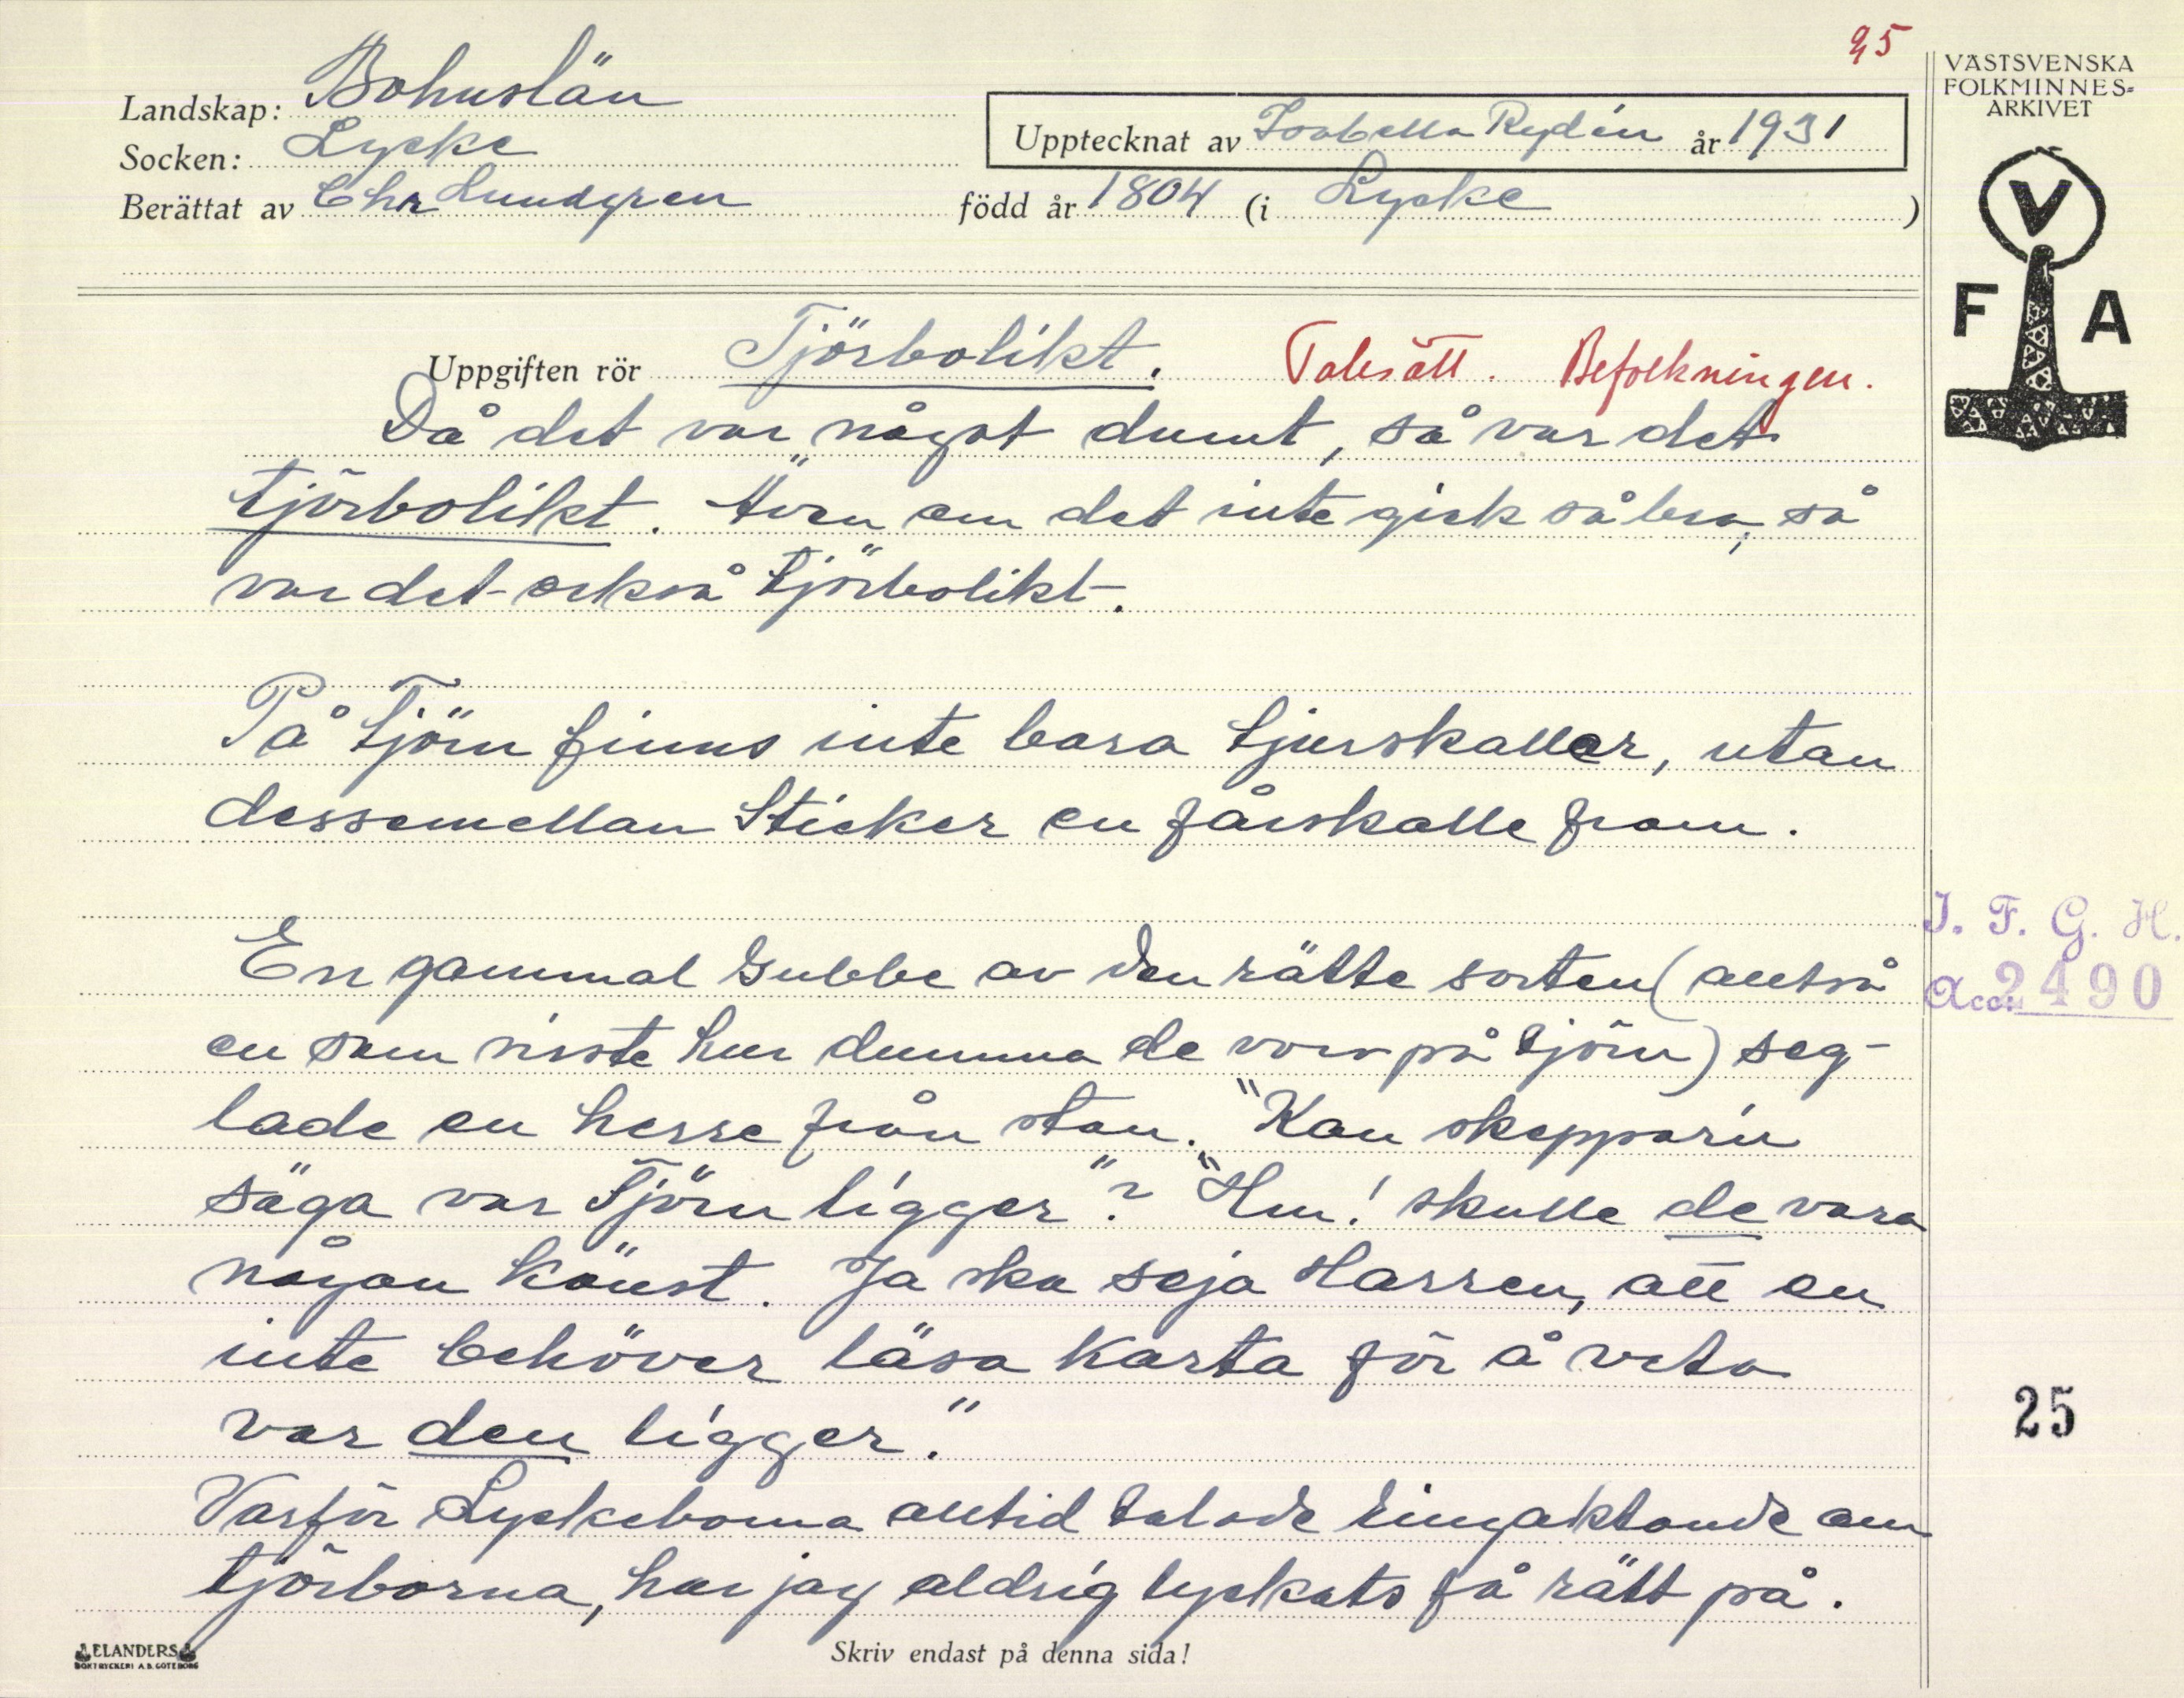 25
VÄSTSVENSKA
FOLKMINNES-
ARKIVET
Landskap: Bohuslän
Socken: Lycke
Upptecknat av Isabella Rydén år 1931
Berättat av Chr Lundgren född år 1804 (i Lycke )
V
F A
Uppgiften rör Tjörbolikt. Talesätt. Befolkningen.
Då det var något dumt, så var det
tjörbolikt. Även om det inte gick så bra, så
var det också tjörbolikt.
På Tjörn finns inte bara tjurskaller, utan
dessemellan sticker en fårskalle fram.
En gammal gubbe av den rätte sorten (alltså
en som visste hur dumma de voro på Tjörn) seg-
lade en herre från stan. "Kan skepparn
säga var Tjörn ligger"? "Hm! skulle de vara
någon könst. Ja ska seja Harren, att en
inte behöver läsa karta för å veta
var den ligger."
Varför Lyckeborna alltid talade ringaktande om
tjörborna, har jag aldrig lyckats få rätt på.
I. F. G. H.
Acc. 2490
25
ELANDERS
BOKTRYCKERI A.B. GÖTEBORG
Skriv endast på denna sida!